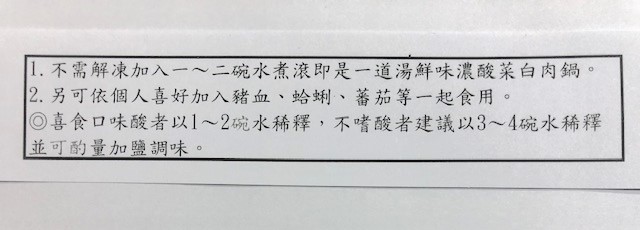 1. 不需解凍加入一～二碗水煮滾即是一道湯鮮味濃酸菜白肉鍋。
2. 另可依個人喜好加入豬血、蛤蜊、蕃茄等一起食用。
◎喜食口味酸者以1～2碗水稀釋，不嗜酸者建議以3～4碗水稀釋
並可酌量加鹽調味。